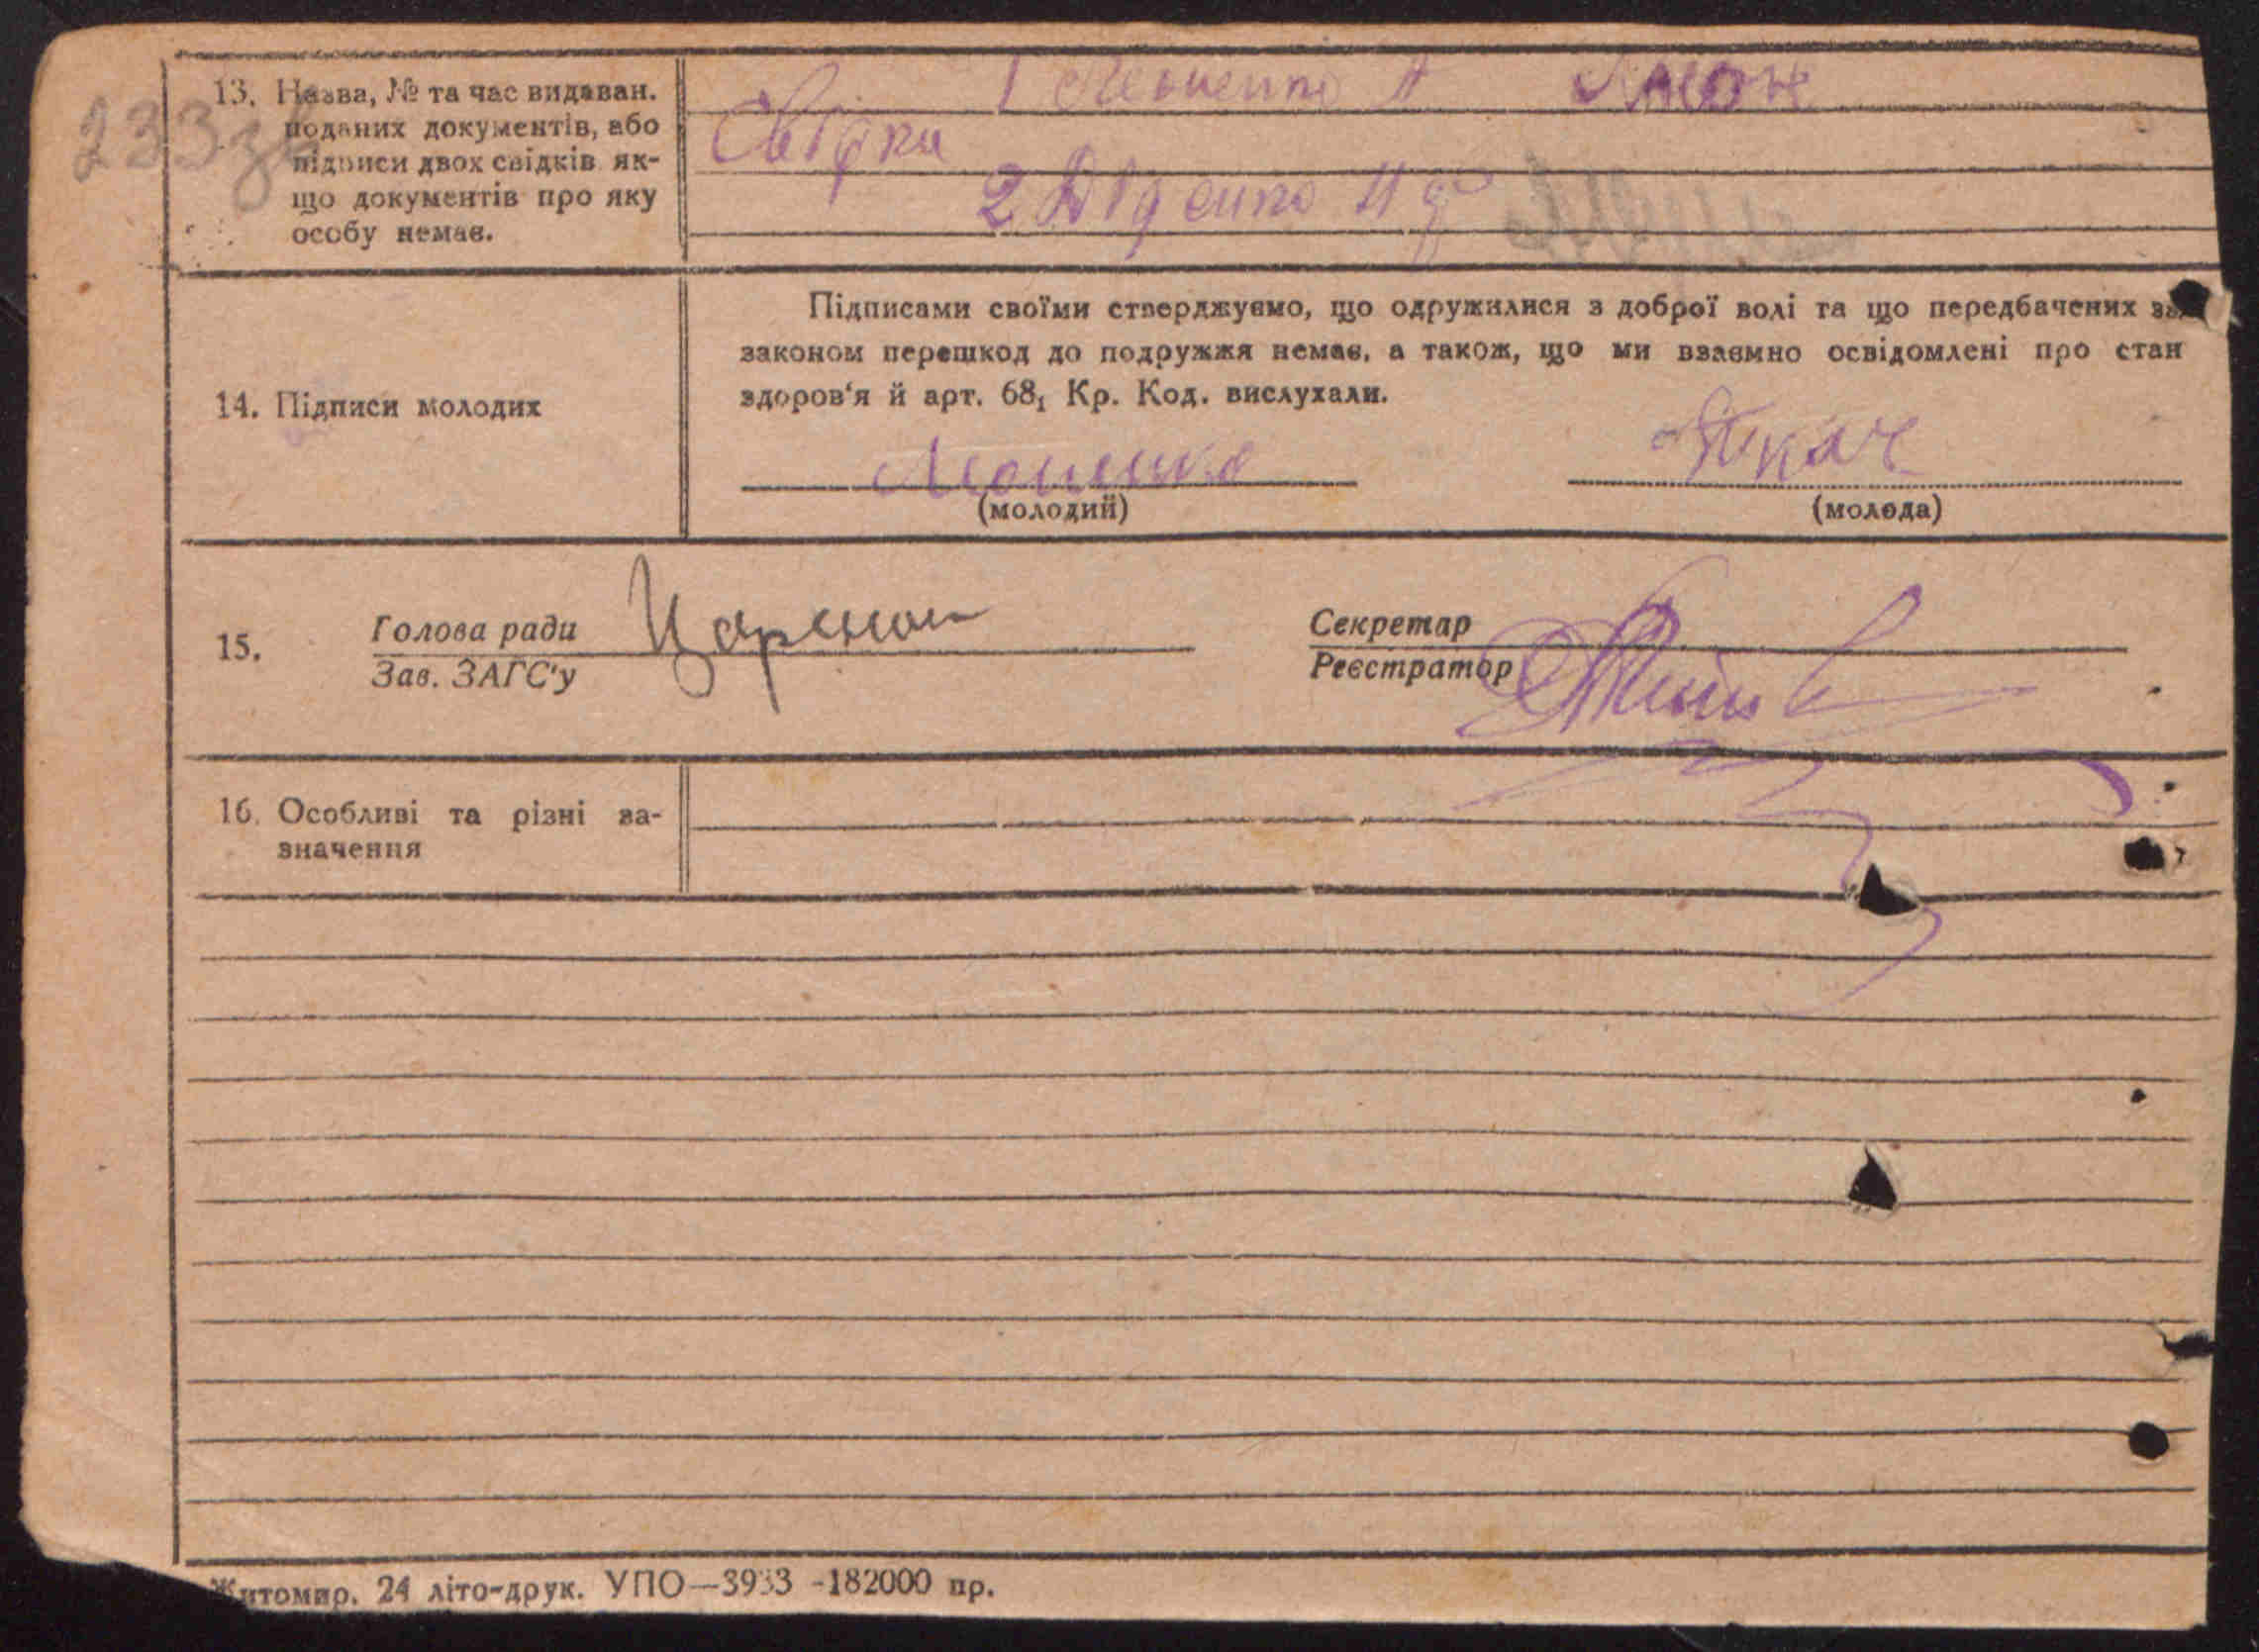 233зв
13. Назва, № та час видаван.
поданих документів, або
підписи двох свідків як-
що документів про яку
особу немає.
1
Свідки
2 Діденко
14. Підписи молодих
Підписами своїми стверджуємо, що одружилися з доброї волі та що передбачених за
законом перешкод до подружжя немає, а також, що ми взаємно освідомлені про стан
здоров'я й арт. 68₁ Кр. Код. вислухали.
Ткач
(молодий) (молода)
15.
Голова ради
Зав. ЗАГС'у
Секретар
Реєстратор
16. Особливі та різні за-
значення
Житомир. 24 літо-друк. УПО—3933 -182000 пр.